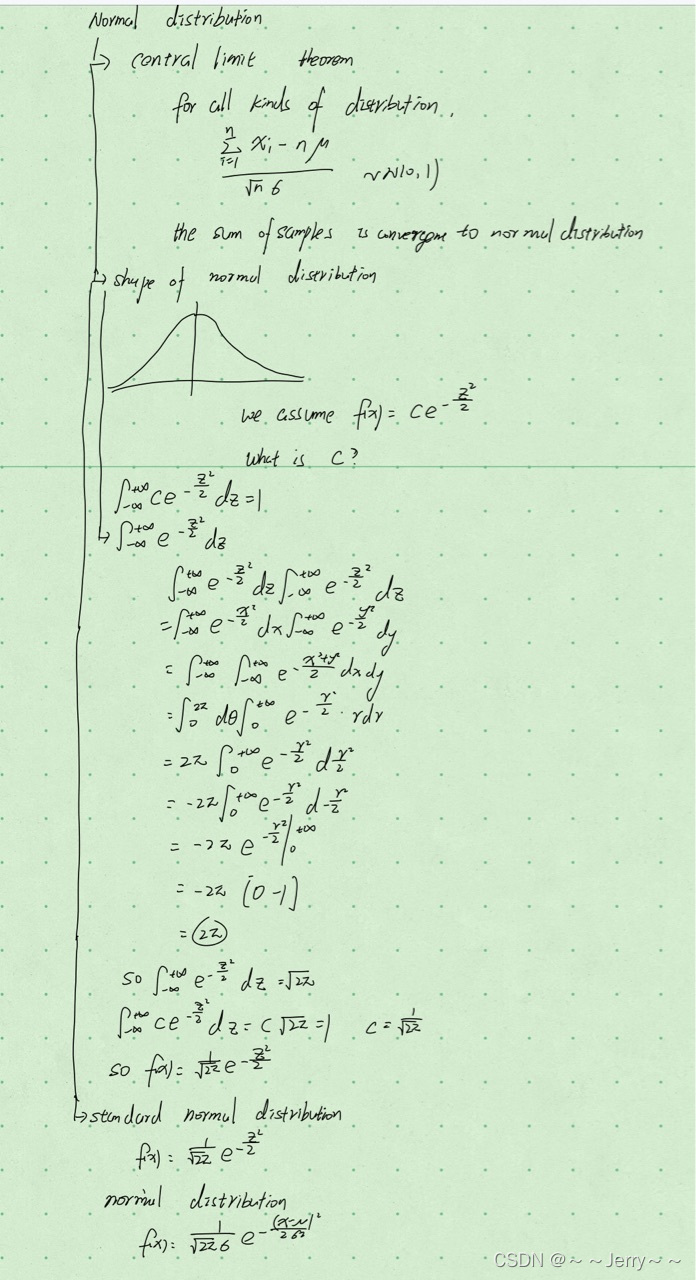 Normal distribution
central limit theorem
for all kinds of distribution,
\frac{\sum_{i=1}^{n} x_i - nμ}{\sqrt{n} σ} ~ N(0,1)
the sum of samples is convergence to normal distribution
shape of normal distribution
we assume f(x) = Ce^{-\frac{z^2}{2}}
What is C?
∫_{-∞}^{+∞} Ce^{-\frac{z^2}{2}} dz = 1
∫_{-∞}^{+∞} e^{-\frac{z^2}{2}} dz
∫_{-∞}^{+∞} e^{-\frac{z^2}{2}} dz ∫_{-∞}^{+∞} e^{-\frac{z^2}{2}} dz
= ∫_{-∞}^{+∞} e^{-\frac{x^2}{2}} dx ∫_{-∞}^{+∞} e^{-\frac{y^2}{2}} dy
= ∫_{-∞}^{+∞} ∫_{-∞}^{+∞} e^{-\frac{x^2+y^2}{2}} dxdy
= ∫_0^{2π} dθ ∫_0^{+∞} e^{-\frac{r^2}{2}} · rdr
= 2π ∫_0^{+∞} e^{-\frac{r^2}{2}} d\frac{r^2}{2}
= -2π ∫_0^{+∞} e^{-\frac{r^2}{2}} d-\frac{r^2}{2}
= -2π e^{-\frac{r^2}{2}} |_0^{+∞}
= -2π (0-1)
= 2π
so ∫_{-∞}^{+∞} e^{-\frac{z^2}{2}} dz = \sqrt{2π}
∫_{-∞}^{+∞} Ce^{-\frac{z^2}{2}} dz = C\sqrt{2π} = 1 C = \frac{1}{\sqrt{2π}}
so f(x) = \frac{1}{\sqrt{2π}} e^{-\frac{z^2}{2}}
standard normal distribution
f(x) = \frac{1}{\sqrt{2π}} e^{-\frac{z^2}{2}}
normal distribution
f(x) = \frac{1}{\sqrt{2π} σ} e^{-\frac{(x-μ)^2}{2σ^2}}
CSDN @~~Jerry~~